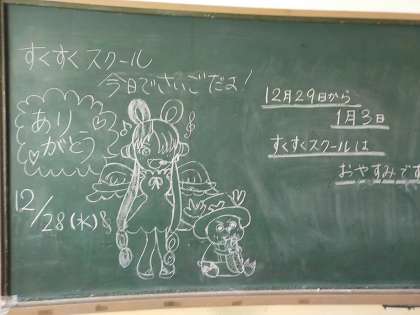 すくすくスクール
今日でさいごだよ!
あり
がとう
12/28(水)
12月29日から
1月3日
すくすくスクールは
おやすみです